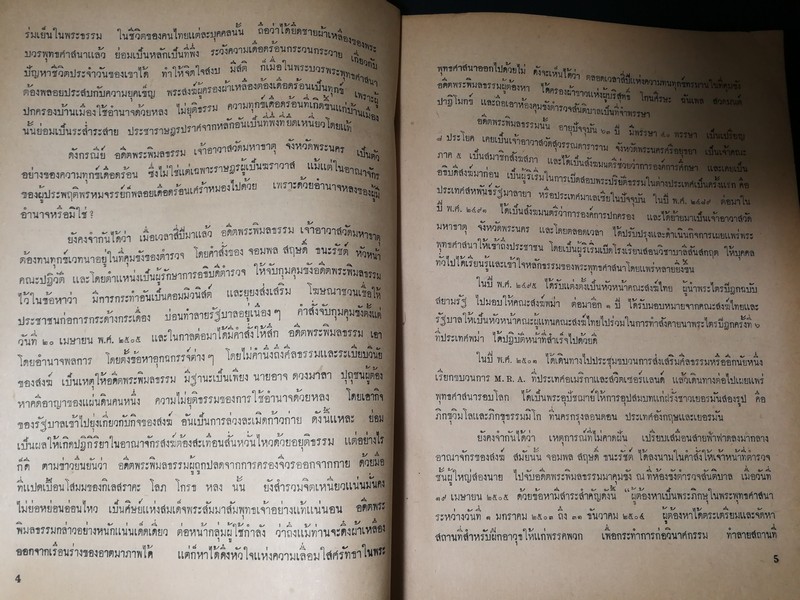 ร่มเย็นในพระธรรม ในชีวิตของคนไทยแต่ละบุคคลนั้น ถือว่าได้ยึดชายผ้าเหลืองของพระ
บวรพุทธศาสนาแล้ว ย่อมเป็นหลักเป็นที่พึ่ง ระงับความเดือดร้อนกระวนกระวาย เกี่ยวกับ
ปัญหาชีวิตประจำวันของเขาได้ ทำให้จิตใจสงบ มีสติ ก็เมื่อในพระบวรพระพุทธศาสนา
ต้องพลอยประสบกับความยุคเข็ญ พระสงฆ์ผู้ครองผ้าเหลืองต้องเดือดร้อนเป็นทุกข์ เพราะผู้
ปกครองบ้านเมืองใช้อำนาจด้วยหลง ไม่ยุติธรรม ความทุกข์เดือดร้อนที่เกิดขึ้นแก่บ้านเมือง
นั้นย่อมเป็นระส่ำระสาย ประชาราษฎรปราศจากหลักอันเป็นที่พึ่งที่ยึดเหนี่ยวโดยแท้
ดังกรณีย์ อดีตพระพิมลธรรม เจ้าอาวาสวัดมหาธาตุ จังหวัดพระนคร เป็นตัว
อย่างของความทุกข์เดือดร้อน ซึ่งไม่ใช่แต่เพราะราษฎรผู้เป็นฆราวาส แม้แต่ในอาณาจักร
ของผู้ประพฤติพรหมจรรย์ก็พลอยเดือดร้อนเศร้าหมองไปด้วย เพราะด้วยอำนาจหลงของผู้มี
อำนาจหรือมิใช่ ?
ยังคงจำกันได้ว่า เมื่อเวลาสี่ปีมาแล้ว อดีตพระพิมลธรรม เจ้าอาวาสวัดมหาธาตุ
ต้องทนทุกข์เวทนาอยู่ในที่คุมขังของตำรวจ โดยคำสั่งของ จอมพล สฤษดิ์ ธนะรัชต์ หัวหน้า
คณะปฏิวัติ และโดยตำแหน่งเป็นผู้รักษาการอธิบดีตำรวจ ให้จับกุมคุมขังอดีตพระพิมลธรรม
ไว้ในข้อหาว่า มีการกระทำอันเป็นคอมมิวนิสต์ และยุยงส่งเสริม โฆษณาชวนเชื่อให้
ประชาชนก่อการกระด้างกระเดื่อง บ่อนทำลายรัฐบาลอยู่เนือง ๆ คำสั่งจับกุมคุมขังตั้งแต่
วันที่ ๒๐ เมษายน พ.ศ. ๒๕๐๕ และในกาลต่อมาได้มีคำสั่งให้สึก อดีตพระพิมลธรรม เอา
โดยอำนาจพลการ โดยตั้งข้อหาอุกฉกรรจ์ต่าง ๆ โดยไม่คำนึงถึงศีลธรรมและระเบียบวินัย
ของสงฆ์ เป็นเหตุให้อดีตพระพิมลธรรม มีฐานะเป็นเพียง นายอาจ ดวงมาลา ปุถุชนผู้ต้อง
หาคดีอาญาของแผ่นดินคนหนึ่ง ความไม่ยุติธรรมของการใช้อำนาจด้วยหลง โดยเอากิจ
ของรัฐบาลเข้าไปยุ่งเกี่ยวกับกิจของสงฆ์ อันเป็นการล่วงละเมิดก้าวก่าย ดังนั้นแหละ ย่อม
เป็นผลให้เกิดปฏิกิริยาในอาณาจักรสงฆ์ต้องสะเทือนสั่นหวั่นไหวด้วยอยุติธรรม แต่อย่างไร
ก็ดี ตามข่าวยืนยันว่า อดีตพระพิมลธรรมผู้ถูกปลดจากการครองจีวรออกจากกาย ด้วยมือ
ที่แปดเปื้อนโสมมของกิเลสราคะ โลภ โกรธ หลง นั้น ยังสำรวมจิตเหนี่ยวแน่นมั่นคง
ไม่ย่อหย่อนอ่อนไหว เป็นศิษย์แห่งสมเด็จพระสัมมาสัมพุทธเจ้าอย่างแท้แน่นอน อดีตพระ
พิมลธรรมกล่าวอย่างหนักแน่นเด็ดเดี่ยว ต่อหน้ากลุ่มผู้ใช้กำลัง ว่าถึงแม้ท่านจะดึงผ้าเหลือง
ออกจากเรือนร่างของอาตมาภาพได้ แต่ก็หาได้ดึงหัวใจแห่งความเลื่อมใสศรัทธาในพระ
4
พุทธศาสนาออกไปด้วยไม่ ดังจะเห็นได้ว่า ตลอดเวลาสี่ปีแห่งความทนทุกข์ทรมานในที่คุมขัง
อดีตพระพิมลธรรมผู้ต้องหา ให้ครองผ้าขาวแห่งผู้บริสุทธิ์
ปาฏิโมกข์ และถือเอาห้องคุมขังตำรวจสันติบาลเป็นที่จำพรรษา
อดีตพระพิมลธรรมนั้น อายุปัจจุบัน ๖๓ ปี มีพรรษา ๔๐ พรรษา เป็นเปรียญ
๘ ประโยค เคยเป็นเจ้าอาวาสวัดสุวรรณดาราราม จังหวัดพระนครศรีอยุธยา เป็นเจ้าคณะ
ภาค ๕ เป็นสมาชิกสังฆสภา และได้เป็นสังฆมนตรีช่วยว่าการองค์การศึกษา และเคยเป็น
อธิบดีสงฆ์มาก่อน เป็นผู้ริเริ่มในการเปิดสอบพระปริยัติธรรมในต่างประเทศเป็นครั้งแรก คือ
ประเทศสหพันธ์รัฐมาลายา หรือประเทศมาเลเซียในปัจจุบัน ในปี พ.ศ. ๒๔๘๙ ต่อมาใน
ปี พ.ศ. ๒๔๙๑ ได้เป็นสังฆมนตรีว่าการองค์การปกครอง และได้ย้ายมาเป็นเจ้าอาวาสวัด
มหาธาตุ จังหวัดพระนคร และโดยตลอดเวลา ได้ปรับปรุงและดำเนินกิจการเผยแพร่พระ
พุทธศาสนาให้เข้าถึงประชาชน โดยเป็นผู้ริเริ่มเปิดโรงเรียนสอนวิชาบาลีสันสกฤต ให้บุคคล
ทั่วไปได้เรียนรู้และเข้าใจหลักธรรมของพระพุทธศาสนาโดยแพร่หลายยิ่งขึ้น
ในปี พ.ศ. ๒๔๙๕ ได้รับแต่งตั้งเป็นหัวหน้าคณะสงฆ์ไทย ผู้นำพระไตรปิฎกฉบับ
สยามรัฐ ไปมอบให้คณะสงฆ์พม่า ต่อมาอีก ๑ ปี ได้รับมอบหมายจากคณะสงฆ์ไทยและ
รัฐบาลให้เป็นหัวหน้าคณะผู้แทนคณะสงฆ์ไทยไปร่วมในการทำสังคายนาพระไตรปิฎกครั้งที่ ๖
ที่ประเทศพม่า ได้ปฏิบัติหน้าที่สำเร็จไปด้วยดี
ในปี พ.ศ. ๒๕๐๑ ได้เดินทางไปประชุมขบวนการส่งเสริมศีลธรรมหรืออีกนัยหนึ่ง
เรียกขบวนการ M. R. A. ที่ประเทศอเมริกาและสวิตเซอร์แลนด์ แล้วเดินทางต่อไปเผยแพร่
พุทธศาสนารอบโลก ได้เป็นพระอุปัชฌาย์ให้การอุปสมบทแก่ฝรั่งชาวเยอรมันสองรูป คือ
ภิกขุวิมโลและภิกขุธรรมมิโก ที่นครกรุงลอนดอน ประเทศอังกฤษและเยอรมัน
ยังคงจำกันได้ว่า เหตุการณ์ที่ไม่คาดฝัน เปรียบเสมือนสายฟ้าฟาดลงมากลาง
อาณาจักรของสงฆ์ สมัยนั้น จอมพล สฤษดิ์ ธนะรัชต์ ได้ลงนามในคำสั่งให้เจ้าหน้าที่ตำรวจ
ชั้นผู้ใหญ่สองนาย ไปจับอดีตพระพิมลธรรมมาคุมขัง ณ ที่ห้องขังตำรวจสันติบาล เมื่อวันที่
๑๙ เมษายน ๒๕๐๕ ด้วยข้อหามีสาระสำคัญดังนี้ "ผู้ต้องหาเป็นพระภิกษุในพระพุทธศาสนา
ระหว่างวันที่ ๑ มกราคม ๒๕๐๑ ถึง ๓๑ ธันวาคม ๒๕๐๔ ผู้ต้องหาได้ตระเตรียมและจัดหา
สถานที่สำหรับฝึกอาวุธให้แก่พรรคพวก เพื่อกระทำการก่อวินาศกรรม ทำลายสถานที่
5